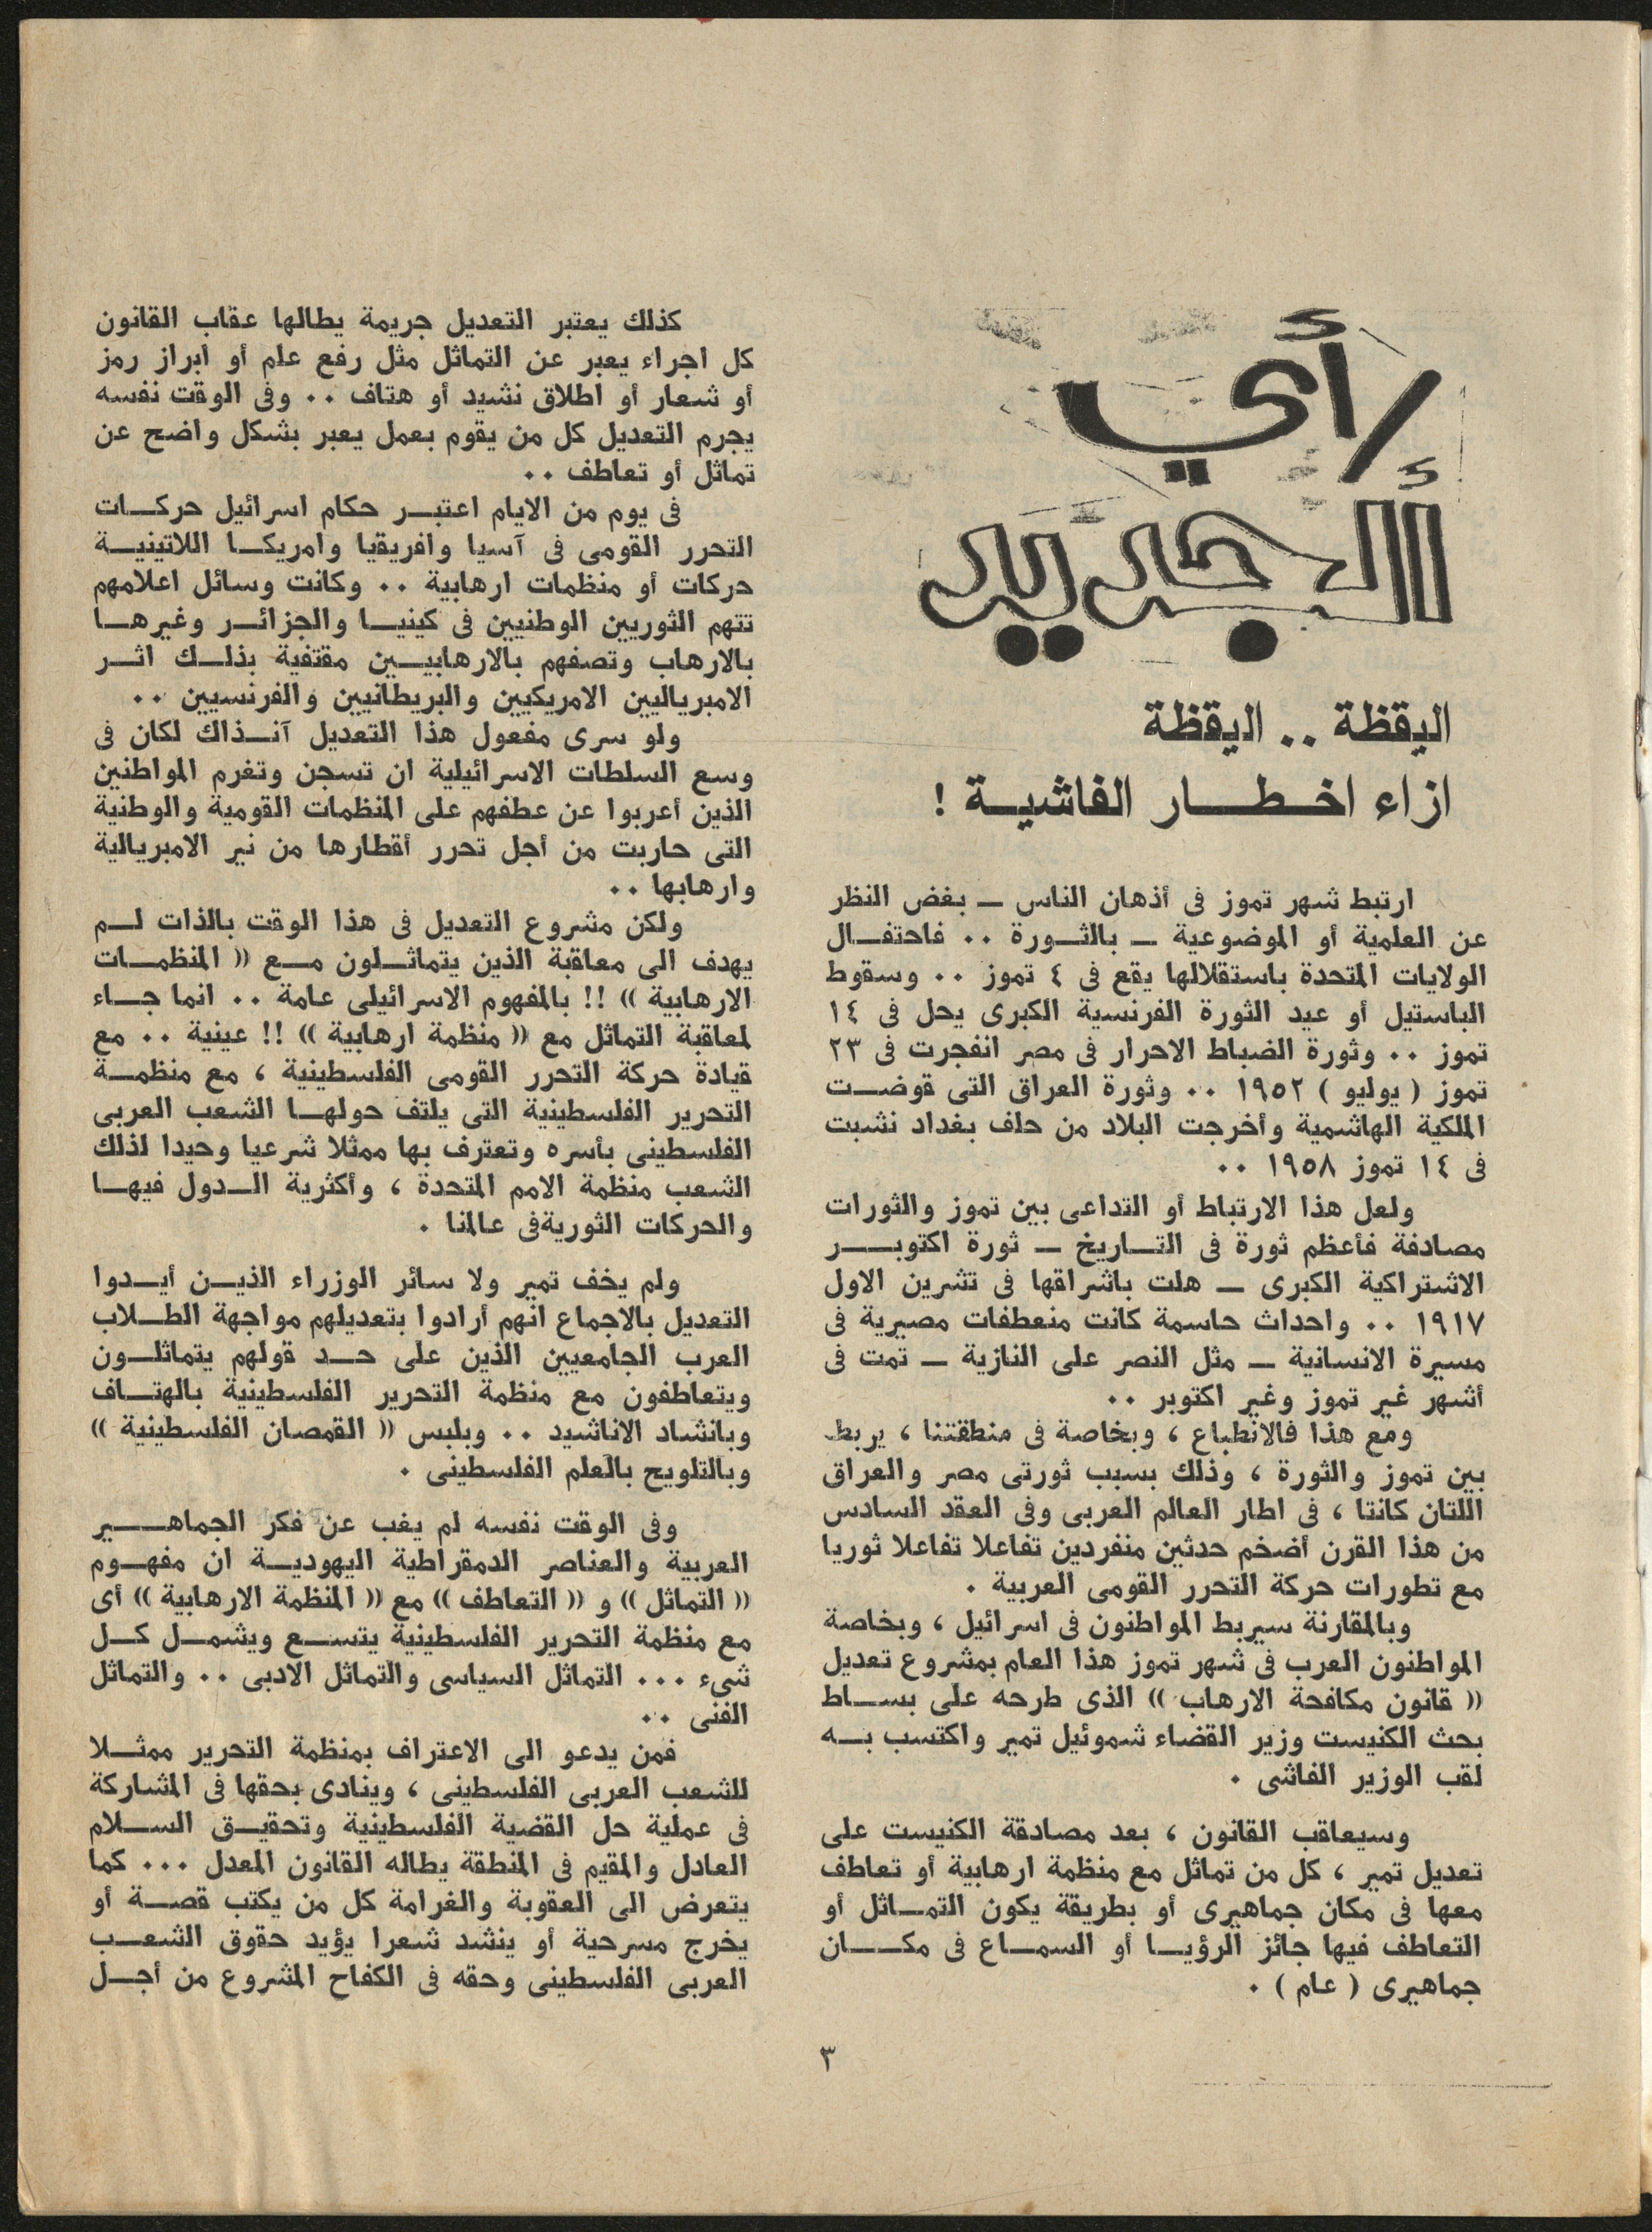 رأي
الجديد
اليقظة .. اليقظة
ازاء اخطار الفاشية !
ارتبط شهر تموز فى أذهان الناس ــ بغض النظر
عن العلمية أو الموضوعية ــ بالثورة .. فاحتفال
الولايات المتحدة باستقلالها يقع فى ٤ تموز .. وسقوط
الباستيل أو عيد الثورة الفرنسية الكبرى يحل فى ١٤
تموز .. وثورة الضباط الاحرار فى مصر انفجرت فى ٢٣
تموز ( يوليو ) ١٩٥٢ .. وثورة العراق التى قوضت
الملكية الهاشمية وأخرجت البلاد من حلف بغداد نشبت
فى ١٤ تموز ١٩٥٨ ..
ولعل هذا الارتباط أو التداعى بين تموز والثورات
مصادفة فأعظم ثورة فى التاريخ ــ ثورة اكتوبر
الاشتراكية الكبرى ــ هلت باشراقها فى تشرين الاول
١٩١٧ .. واحداث حاسمة كانت منعطفات مصيرية فى
مسيرة الانسانية ــ مثل النصر على النازية ــ تمت فى
أشهر غير تموز وغير اكتوبر ..
ومع هذا فالانطباع ، وبخاصة فى منطقتنا ، يربط
بين تموز والثورة ، وذلك بسبب ثورتى مصر والعراق
اللتان كانتا ، فى اطار العالم العربى وفى العقد السادس
من هذا القرن أضخم حدثين منفردين تفاعلا تفاعلا ثوريا
مع تطورات حركة التحرر القومى العربية .
وبالمقارنة سيربط المواطنون فى اسرائيل ، وبخاصة
المواطنون العرب فى شهر تموز هذا العام بمشروع تعديل
(( قانون مكافحة الارهاب )) الذى طرحه على بساط
بحث الكنيست وزير القضاء شموئيل تمير واكتسب به
لقب الوزير الفاشى .
وسيعاقب القانون ، بعد مصادقة الكنيست على
تعديل تمير ، كل من تماثل مع منظمة ارهابية أو تعاطف
معها فى مكان جماهيرى أو بطريقة يكون التماثل أو
التعاطف فيها جائز الرؤيا أو السماع فى مكان
جماهيرى ( عام ) .
كذلك يعتبر التعديل جريمة يطالها عقاب القانون
كل اجراء يعبر عن التماثل مثل رفع علم أو أبراز رمز
أو شعار أو اطلاق نشيد أو هتاف .. وفى الوقت نفسه
يجرم التعديل كل من يقوم بعمل يعبر بشكل واضح عن
تماثل أو تعاطف ..
فى يوم من الايام اعتبر حكام اسرائيل حركات
التحرر القومى فى آسيا وافريقيا وامريكا اللاتينية
حركات أو منظمات ارهابية .. وكانت وسائل اعلامهم
تتهم الثوريين الوطنيين فى كينيا والجزائر وغيرها
بالارهاب وتصفهم بالارهابيين مقتفية بذلك اثر
الامبرياليين الامريكيين والبريطانيين والفرنسيين ..
ولو سرى مفعول هذا التعديل آنذاك لكان فى
وسع السلطات الاسرائيلية ان تسجن وتغرم المواطنين
الذين أعربوا عن عطفهم على المنظمات القومية والوطنية
التى حاربت من أجل تحرر أقطارها من نير الامبريالية
وارهابها ..
ولكن مشروع التعديل فى هذا الوقت بالذات لم
يهدف الى معاقبة الذين يتماثلون مع (( المنظمات
الارهابية )) !! بالمفهوم الاسرائيلى عامة .. انما جاء
لمعاقبة التماثل مع (( منظمة ارهابية )) !! عينية .. مع
قيادة حركة التحرر القومى الفلسطينية ، مع منظمة
التحرير الفلسطينية التى يلتف حولها الشعب العربى
الفلسطينى بأسره وتعترف بها ممثلا شرعيا وحيدا لذلك
الشعب منظمة الامم المتحدة ، وأكثرية الدول فيها
والحركات الثورية فى عالمنا .
ولم يخف تمير ولا سائر الوزراء الذين أيدوا
التعديل بالاجماع انهم أرادوا بتعديلهم مواجهة الطلاب
العرب الجامعيين الذين على حد قولهم يتماثلون
ويتعاطفون مع منظمة التحرير الفلسطينية بالهتاف
وبانشاد الاناشيد .. وبلبس (( القمصان الفلسطينية ))
وبالتلويح بالعلم الفلسطينى .
وفى الوقت نفسه لم يغب عن فكر الجماهير
العربية والعناصر الدمقراطية اليهودية ان مفهوم
(( التماثل )) و (( التعاطف )) مع (( المنظمة الارهابية )) أى
مع منظمة التحرير الفلسطينية يتسع ويشمل كل
شىء ... التماثل السياسى والتماثل الادبى .. والتماثل
الفنى ..
فمن يدعو الى الاعتراف بمنظمة التحرير ممثلا
للشعب العربى الفلسطينى ، وينادى بحقها فى المشاركة
فى عملية حل القضية الفلسطينية وتحقيق السلام
العادل والمقيم فى المنطقة يطاله القانون المعدل ... كما
يتعرض الى العقوبة والغرامة كل من يكتب قصة أو
يخرج مسرحية أو ينشد شعرا يؤيد حقوق الشعب
العربى الفلسطينى وحقه فى الكفاح المشروع من أجل
٣